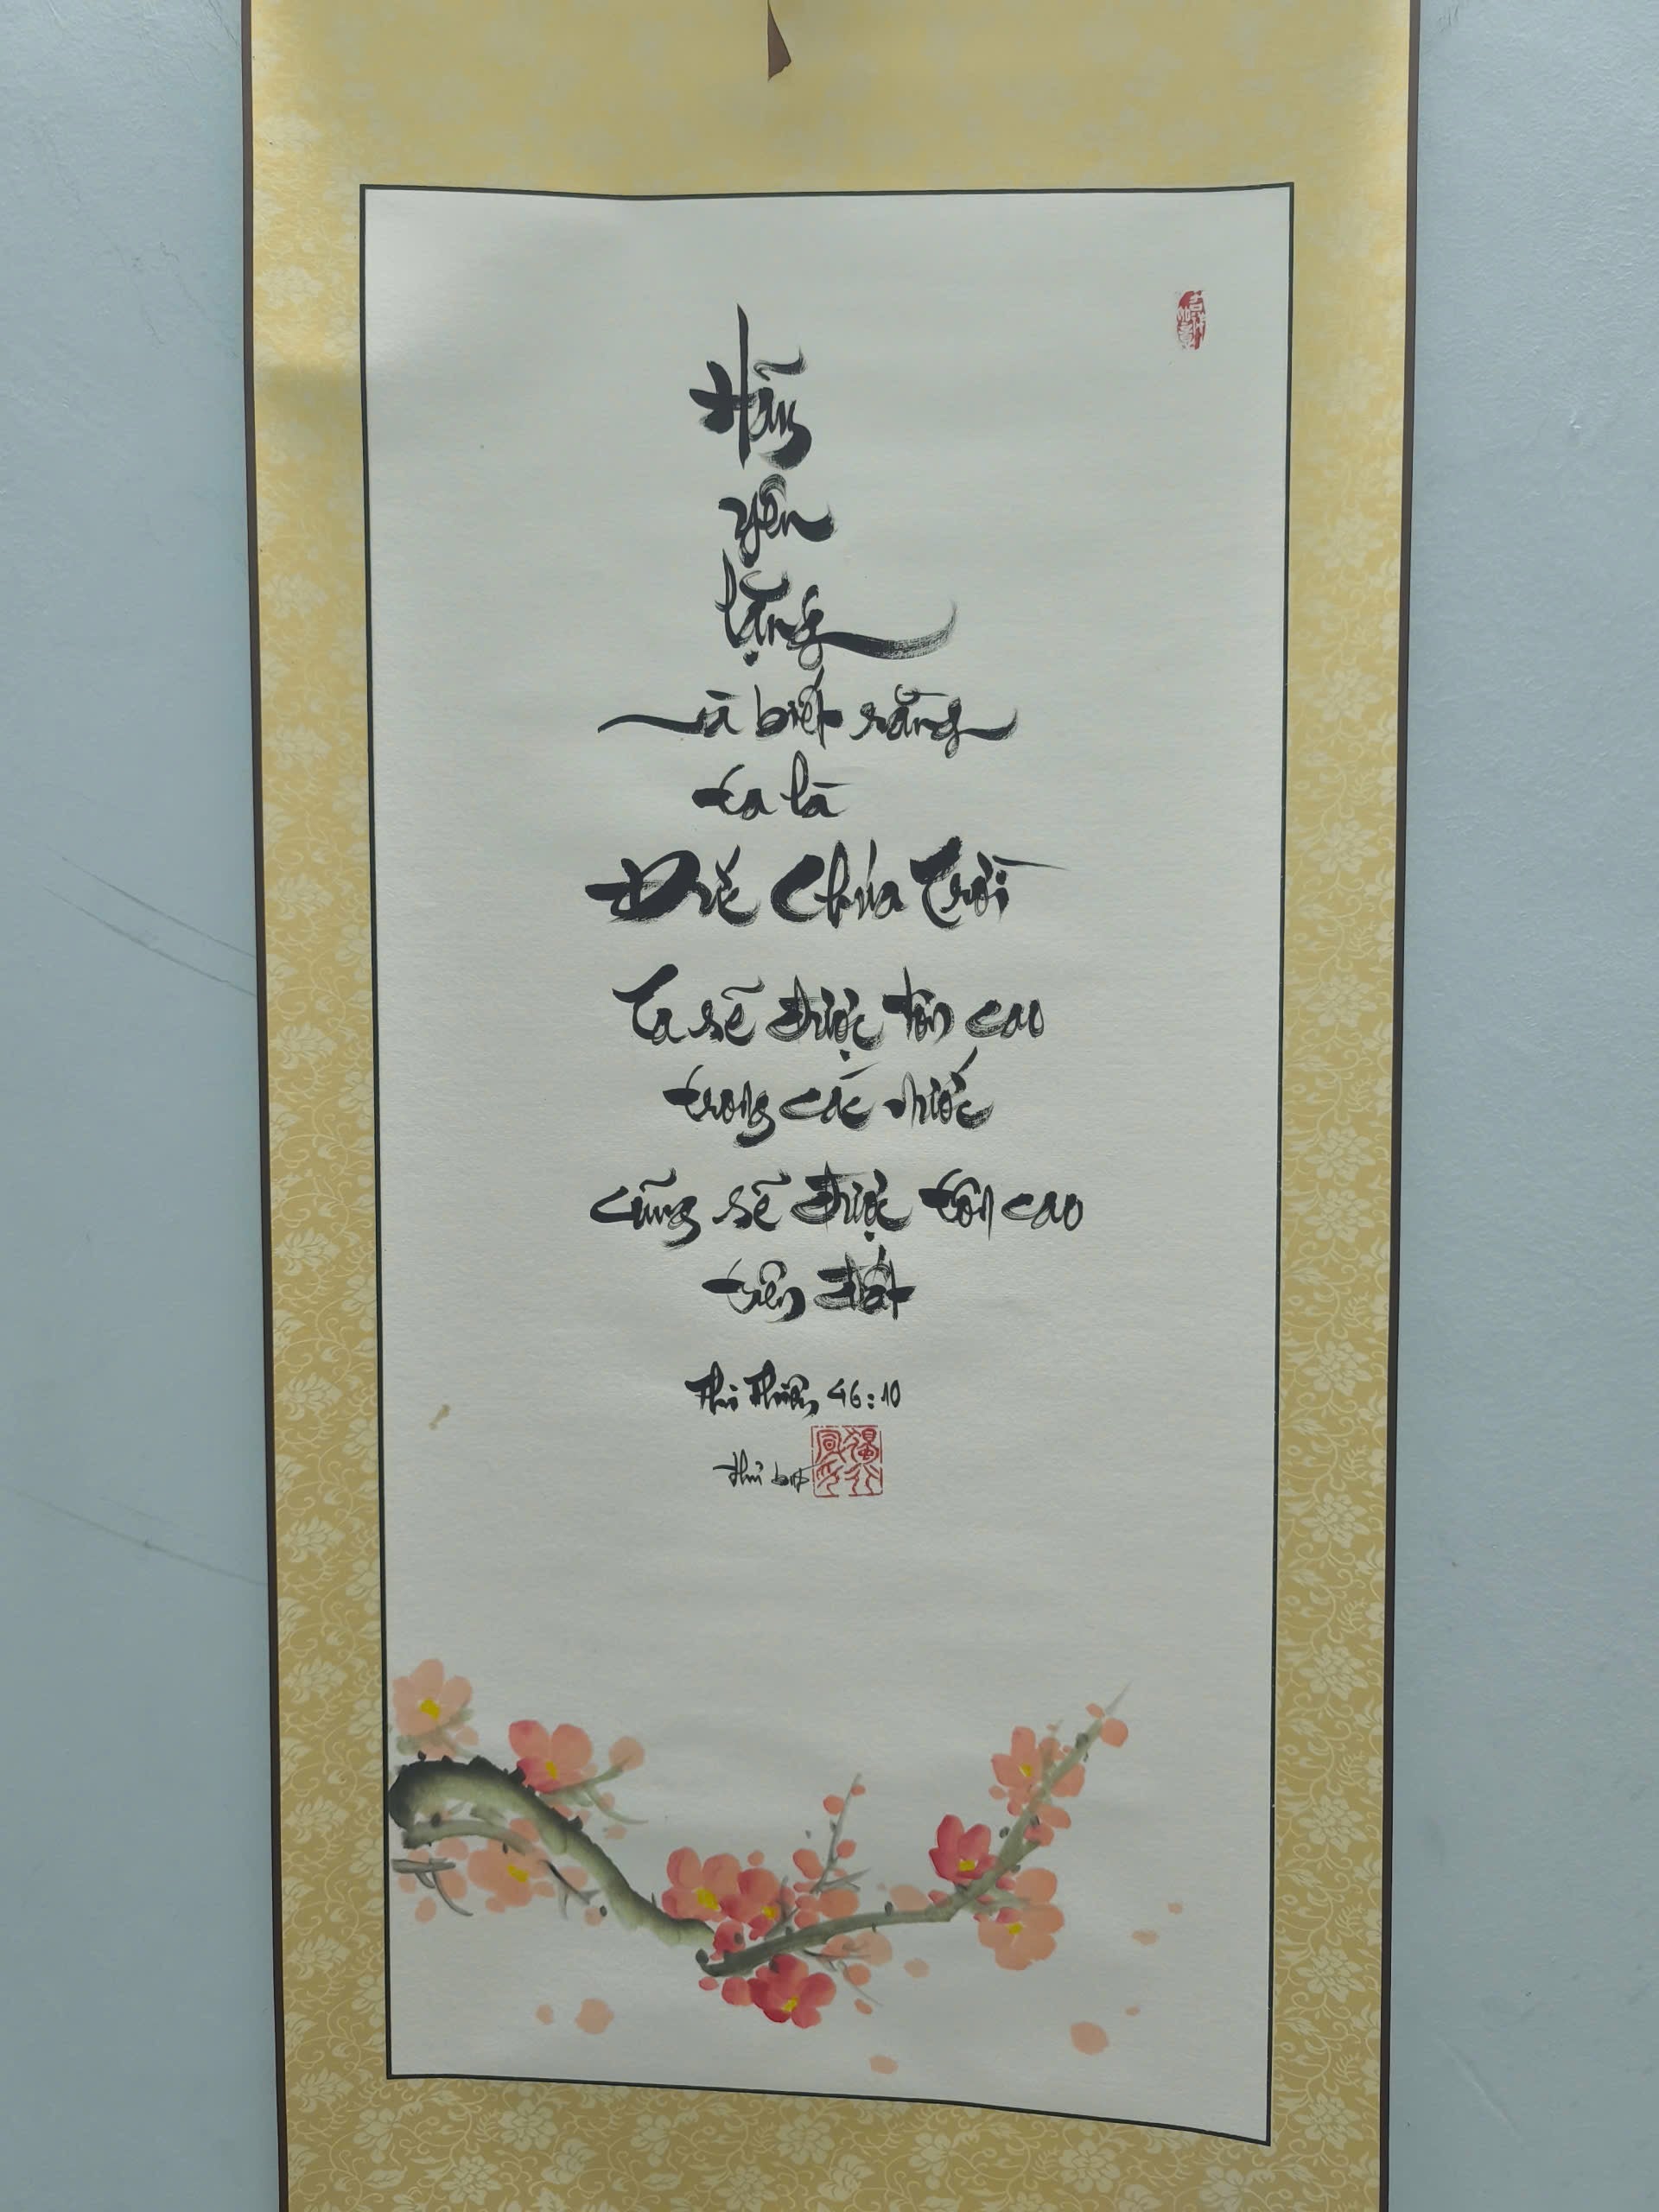 Hãy
yên
lặng
và biết rằng
ta là
Đức Chúa Trời
Ta sẽ được tôn cao
trong các nước
cũng sẽ được tôn cao
trên đất
Thi Thiên 46:10
thủ bút